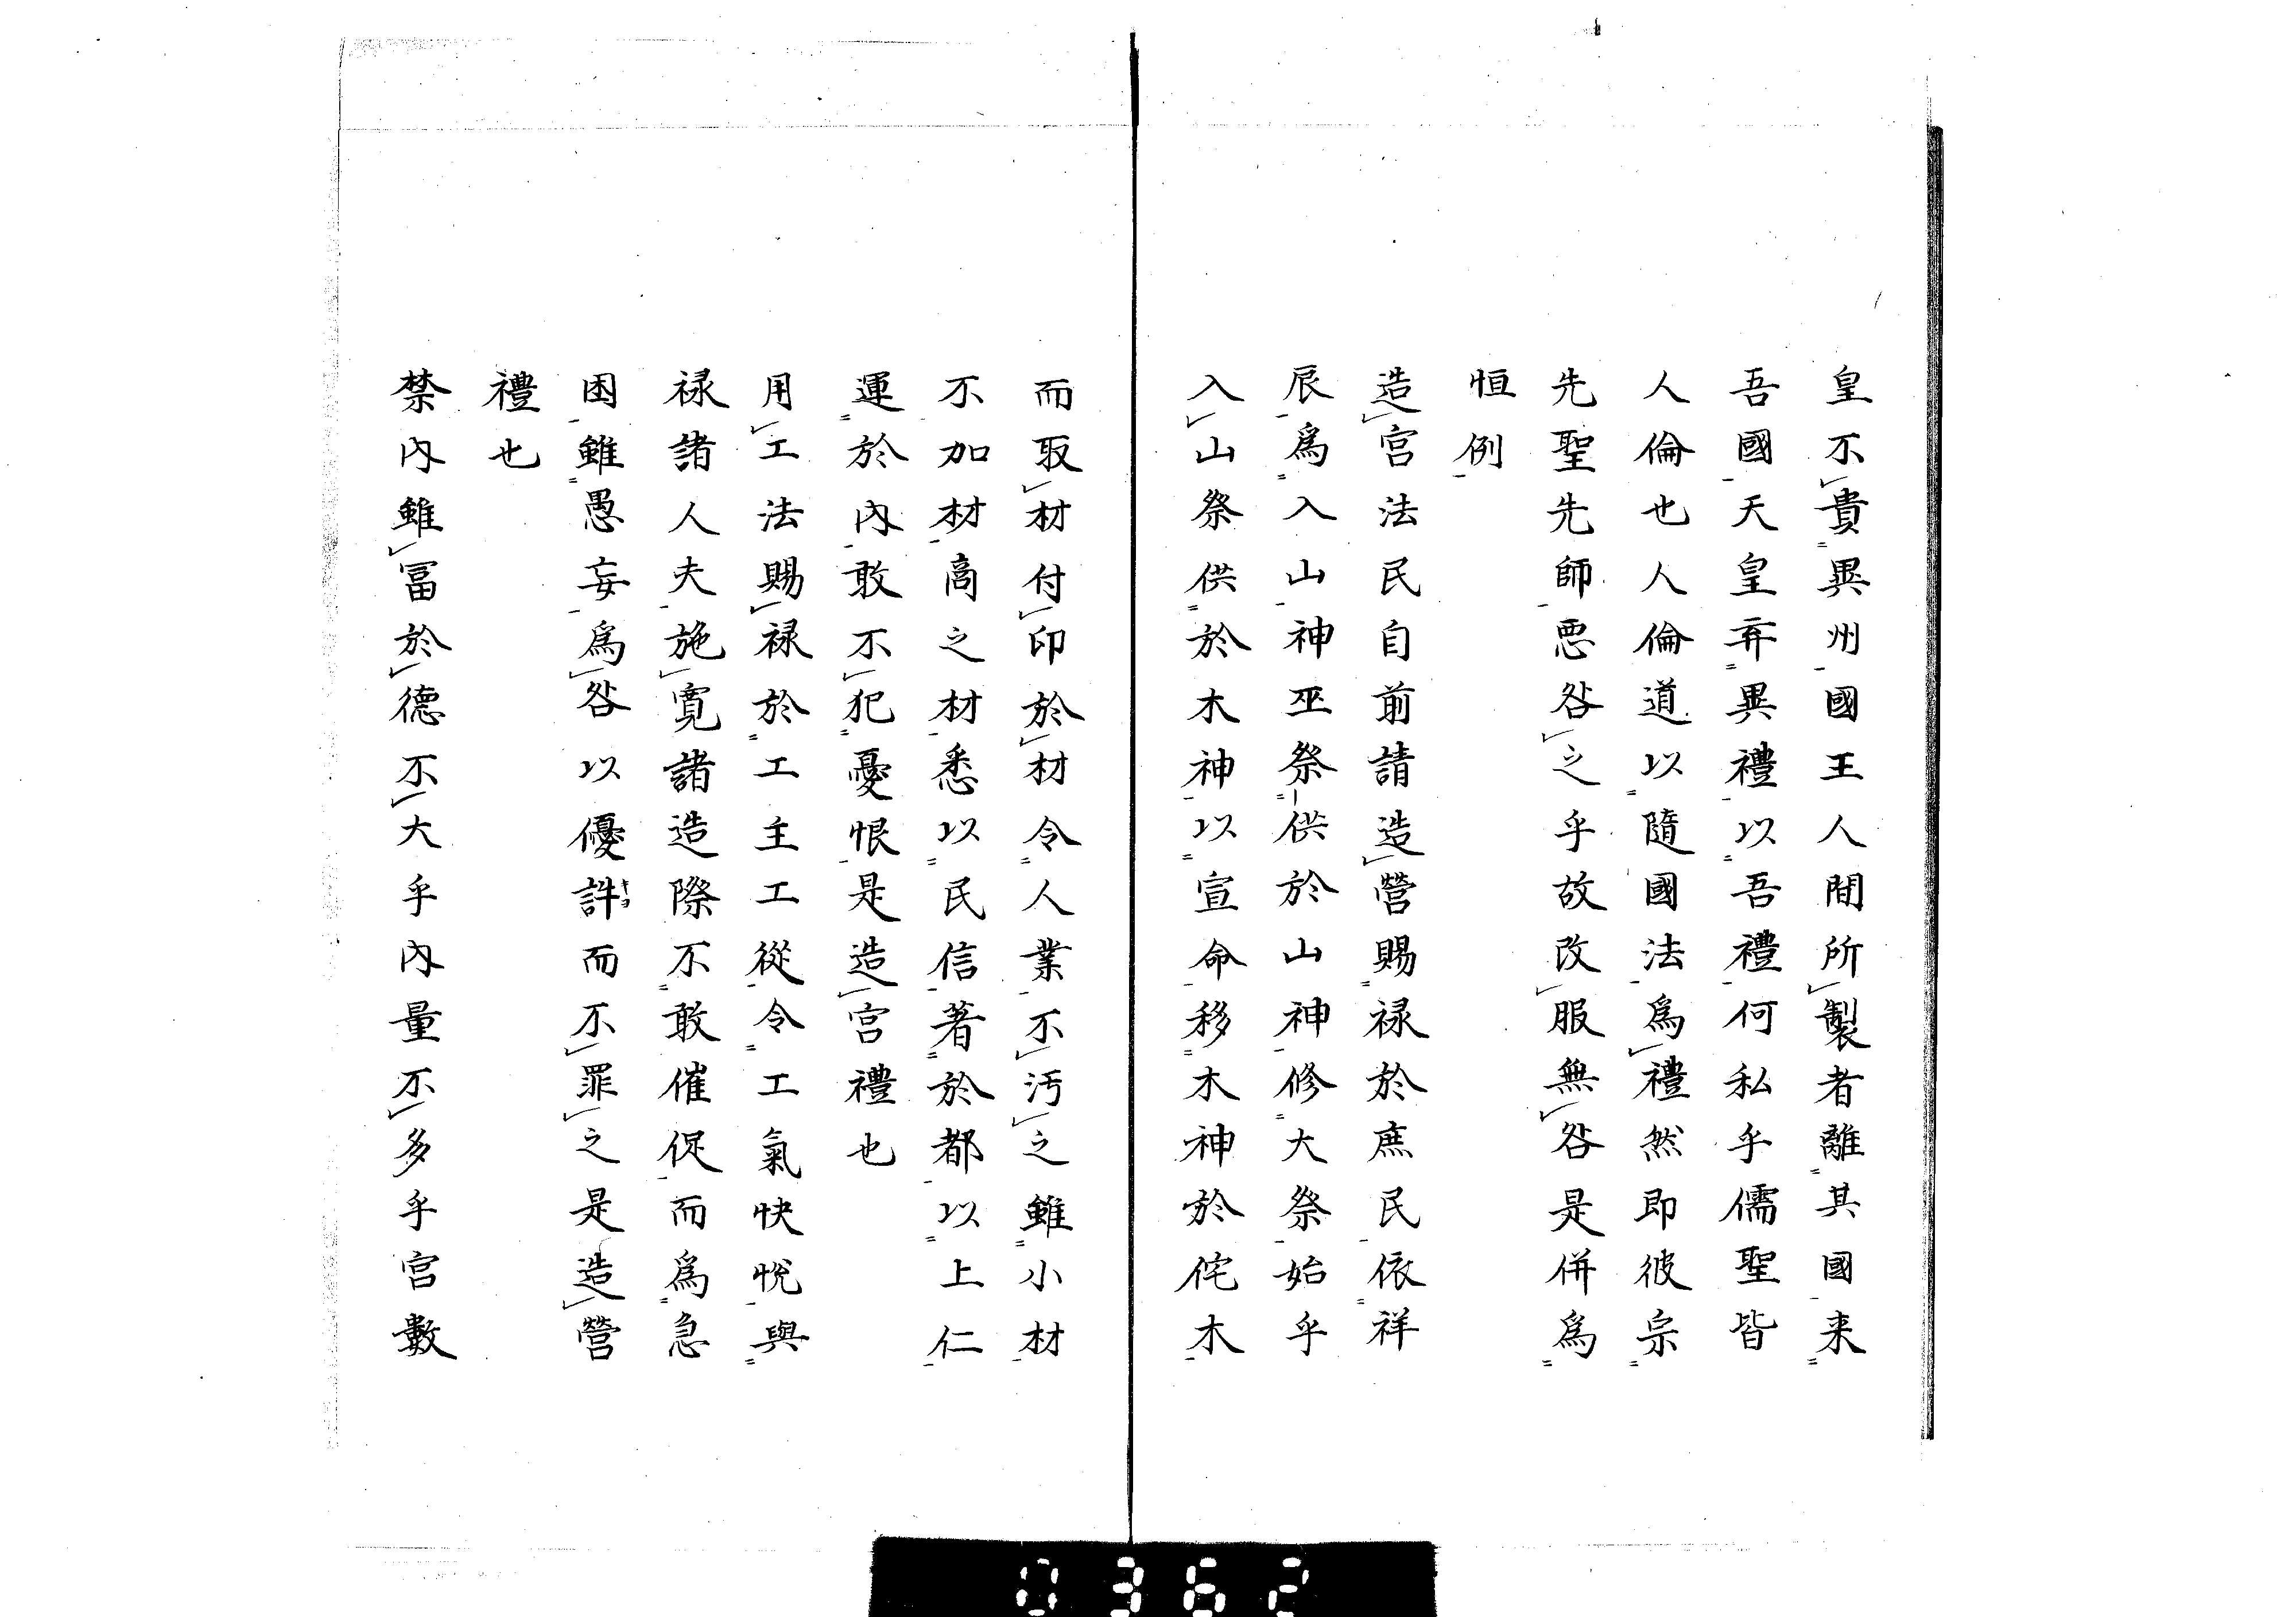 皇不貴異州國王人間所製者離其國来
吾國天皇弃異禮以吾禮何私乎儒聖皆
人倫也人倫道以隨國法爲禮然即彼宗
先聖先師悪咎之乎故改服無咎是併爲
恒例
造宮法民自前請造營賜禄於庶民依祥
辰爲入山神巫祭供於山神修大祭始乎
入山祭供於木神以宣命移木神於侘木
而取材付印於材令人業不汚之雖小材
不加材商之材悉以民信著於都以上仁
運於內敢不犯憂恨是造宮禮也
用工法賜禄於工主工從令工氣快悅與
禄諸人夫施寛諸造際不敢催促而爲急
困雖愚妄爲咎以優許而不罪之是造營
禮也
禁內雖冨於德不大乎內量不多乎宮數
キヨ
0362